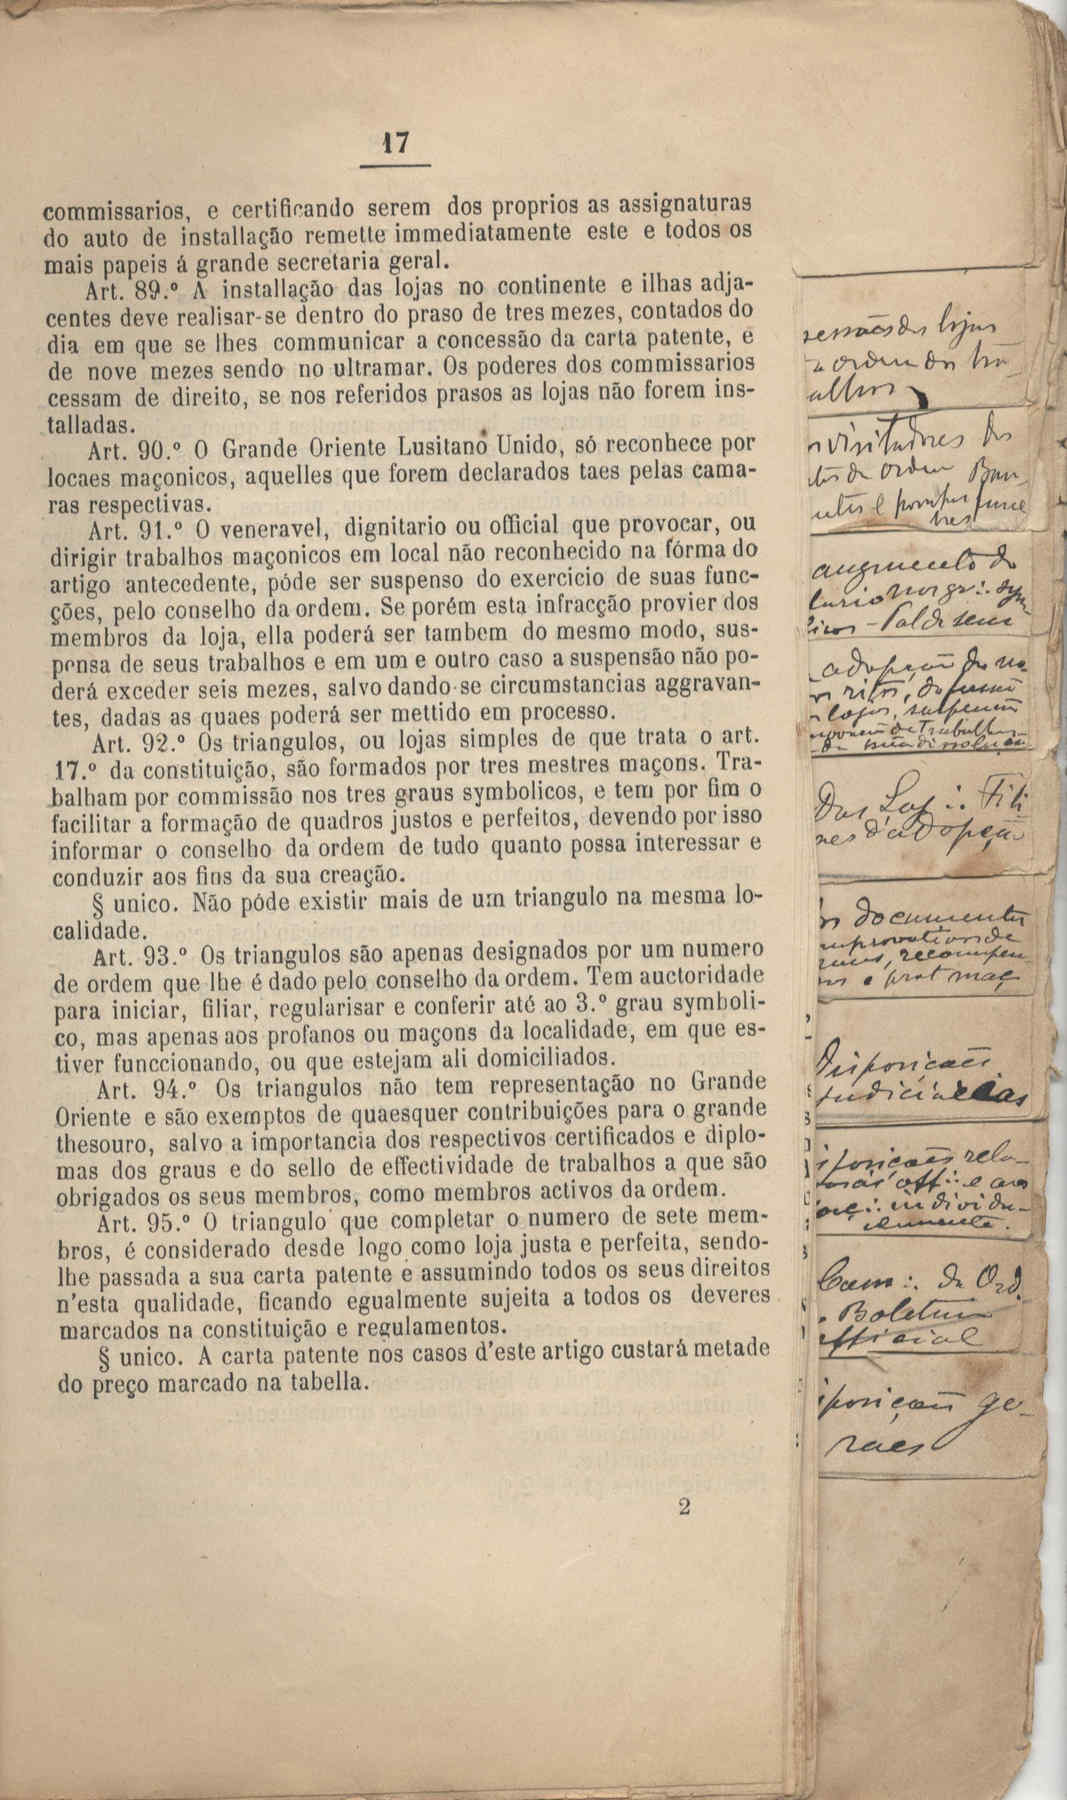 17
commissarios, e certificando serem dos proprios as assignaturas
do auto de installação remette immediatamente este e todos os
mais papeis á grande secretaria geral.
Art. 89.º A installação das lojas no continente e ilhas adja-
centes deve realisar-se dentro do praso de tres mezes, contados do
dia em que se lhes communicar a concessão da carta patente, e
de nove mezes sendo no ultramar. Os poderes dos commissarios
cessam de direito, se nos referidos prasos as lojas não forem ins-
talladas.
Art. 90.º O Grande Oriente Lusitano Unido, só reconhece por
locaes maçonicos, aquelles que forem declarados taes pelas cama-
ras respectivas.
Art. 91.º O veneravel, dignitario ou official que provocar, ou
dirigir trabalhos maçonicos em local não reconhecido na fórma do
artigo antecedente, póde ser suspenso do exercicio de suas func-
ções, pelo conselho da ordem. Se porém esta infracção provier dos
membros da loja, ella poderá ser tambem do mesmo modo, sus-
pensa de seus trabalhos e em um e outro caso a suspensão não po-
derá exceder seis mezes, salvo dando-se circumstancias aggravan-
tes, dadas as quaes poderá ser mettido em processo.
Art. 92.º Os triangulos, ou lojas simples de que trata o art.
17.º da constituição, são formados por tres mestres maçons. Tra-
balham por commissão nos tres graus symbolicos, e tem por fim o
facilitar a formação de quadros justos e perfeitos, devendo por isso
informar o conselho da ordem de tudo quanto possa interessar e
conduzir aos fins da sua creação.
§ unico. Não póde existir mais de um triangulo na mesma lo-
calidade.
Art. 93.º Os triangulos são apenas designados por um numero
de ordem que lhe é dado pelo conselho da ordem. Tem auctoridade
para iniciar, filiar, regularisar e conferir até ao 3.º grau symboli-
co, mas apenas aos profanos ou maçons da localidade, em que es-
tiver funccionando, ou que estejam ali domiciliados.
Art. 94.º Os triangulos não tem representação no Grande
Oriente e são exemptos de quaesquer contribuições para o grande
thesouro, salvo a importancia dos respectivos certificados e diplo-
mas dos graus e do sello de effectividade de trabalhos a que são
obrigados os seus membros, como membros activos da ordem.
Art. 95.º O triangulo que completar o numero de sete mem-
bros, é considerado desde logo como loja justa e perfeita, sendo-
lhe passada a sua carta patente e assumindo todos os seus direitos
n'esta qualidade, ficando egualmente sujeita a todos os deveres
marcados na constituição e regulamentos.
§ unico. A carta patente nos casos d'este artigo custará metade
do preço marcado na tabella.
2
sessões das lojas
ordem dos tra-
visitadores dos
da ordem
augmento do
adopção de no-
ritos,
lojas,
de trabalhos
Das Loj∴
d'adopção
documentos
Disposições
judiciarias
off∴ e aos
individu-
Cam∴ da Ord.
Boletim
official
ge-
raes